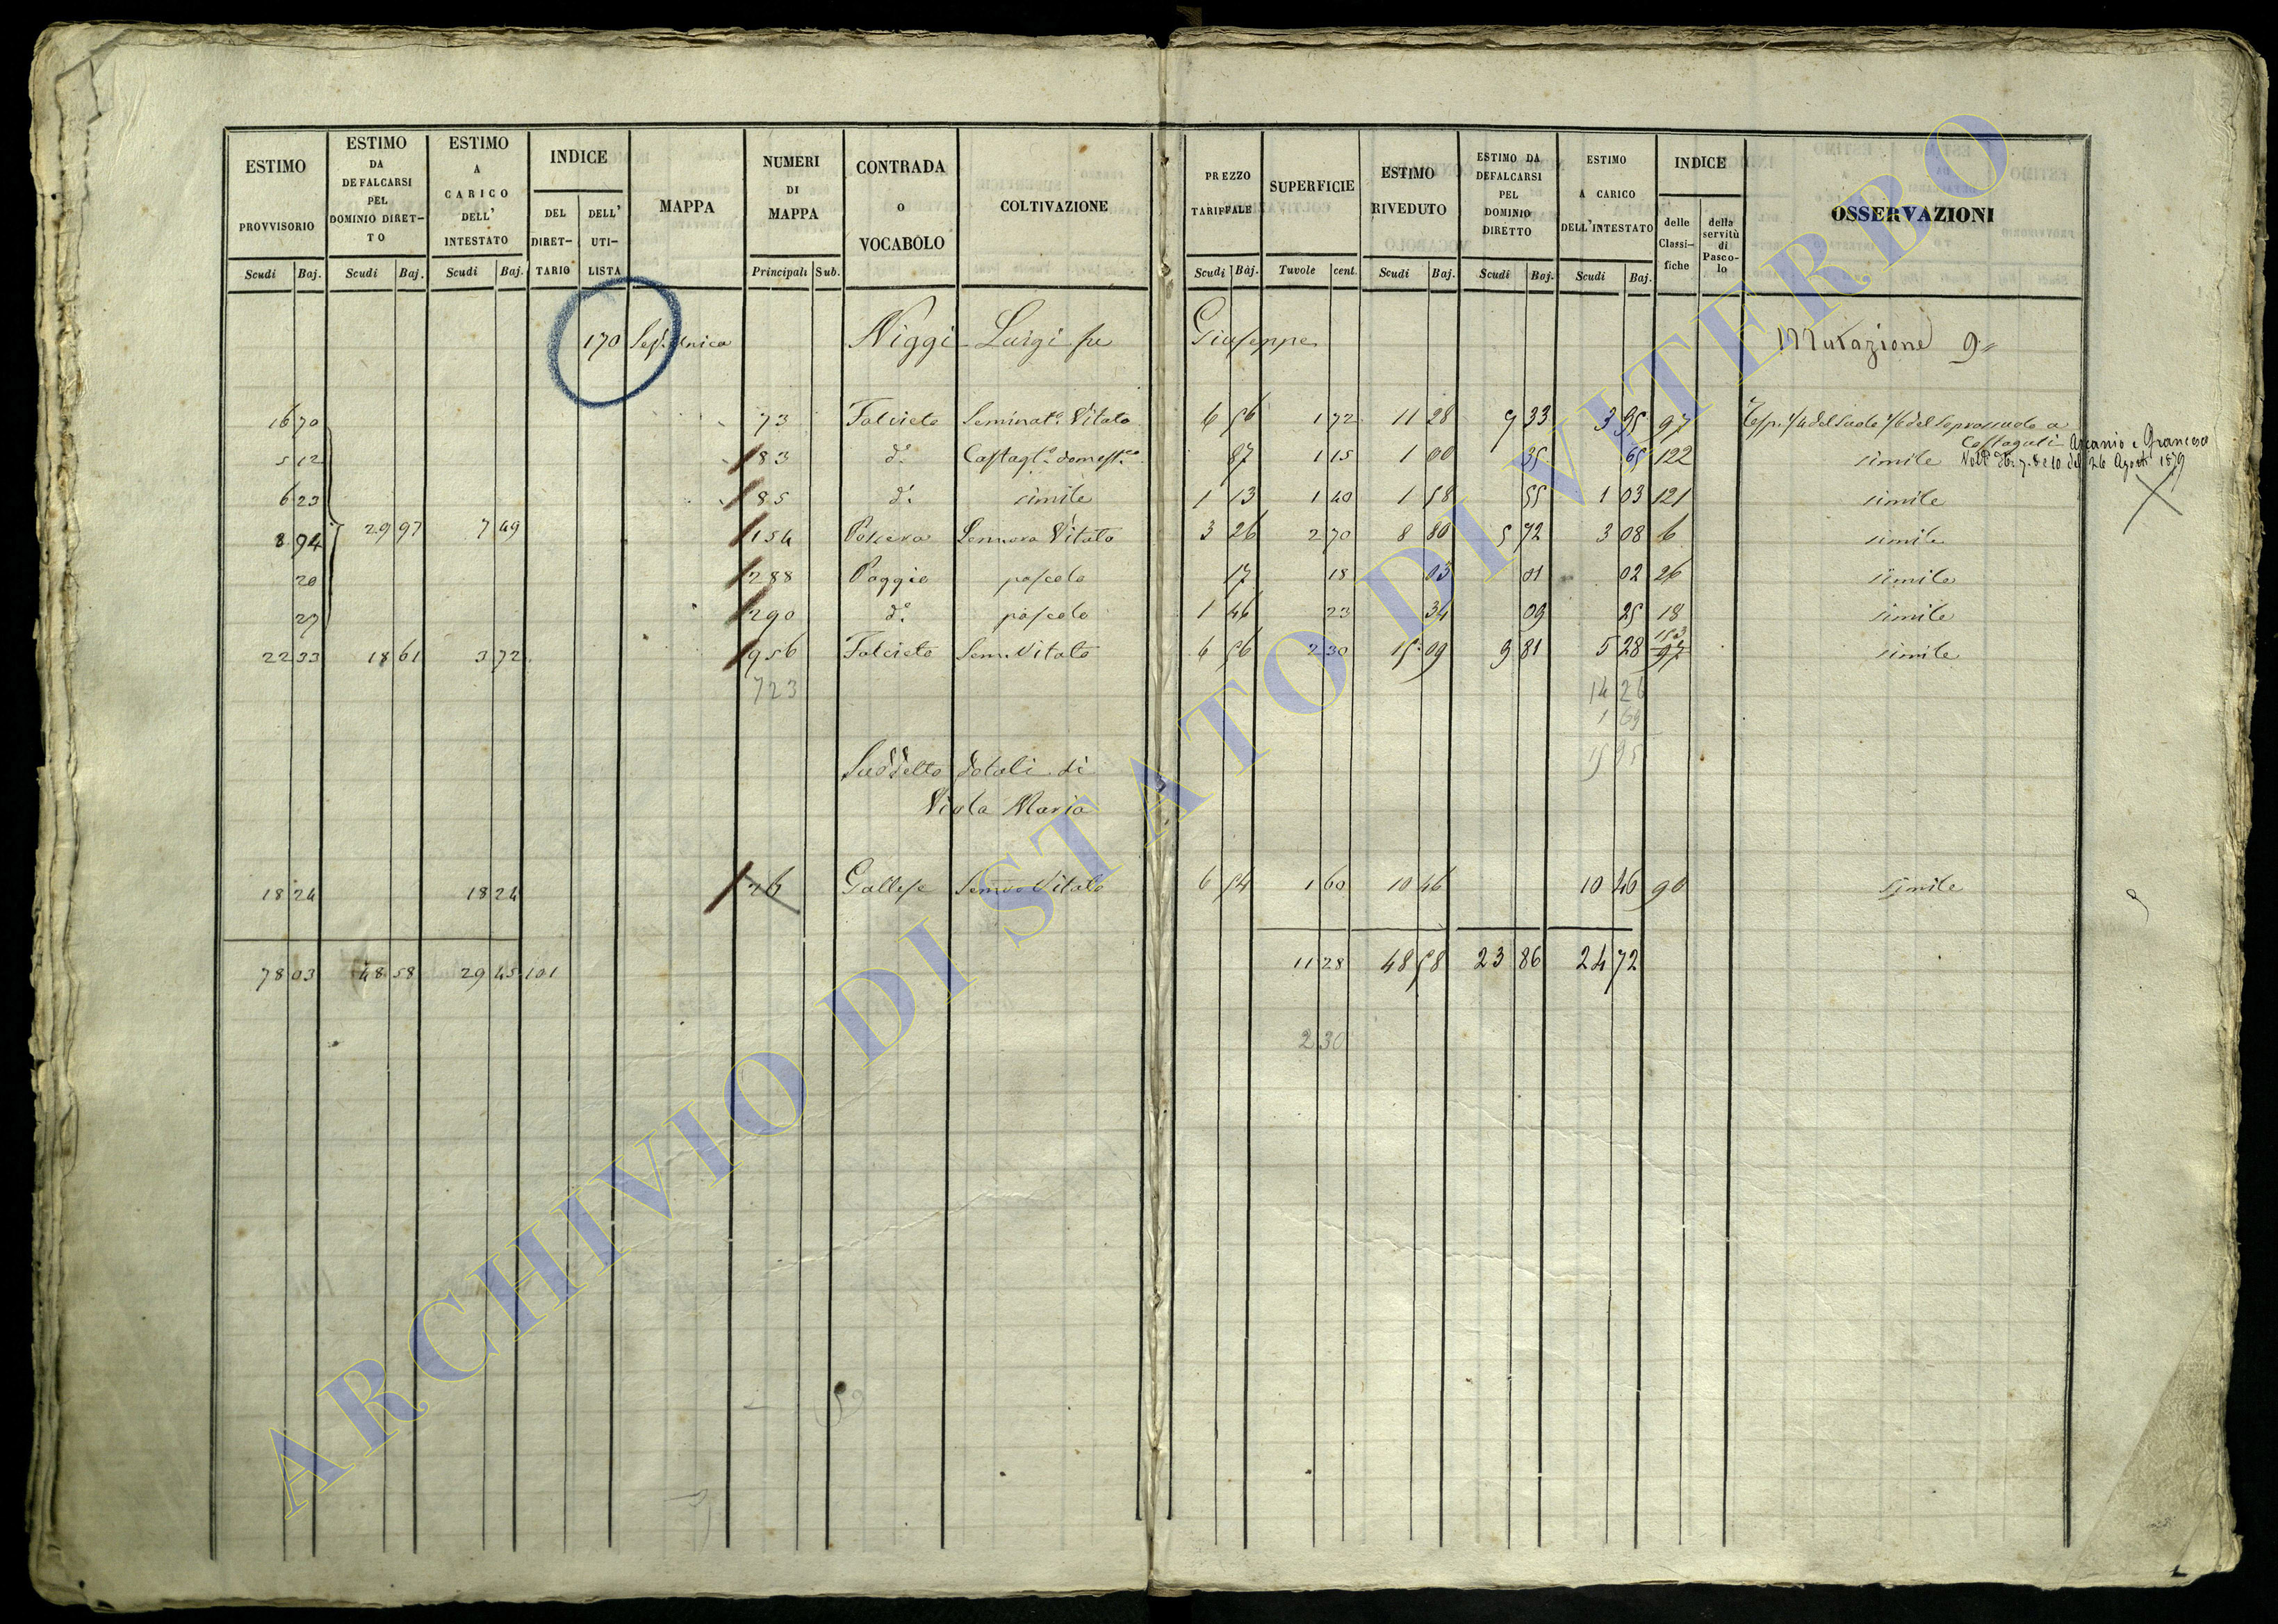 ESTIMO PROVVISORIO Scudi Baj.
ESTIMO DA DEFALCARSI PEL DOMINIO DIRET-TO Scudi Baj.
ESTIMO A CARICO DELL' INTESTATO Scudi Baj.
INDICE DEL DIRET-TARIO DELL' UTI-LISTA
MAPPA
NUMERI DI MAPPA Principali Sub.
CONTRADA o VOCABOLO
COLTIVAZIONE
PREZZO TARIFFALE Scudi Baj.
SUPERFICIE Tavole cent.
ESTIMO RIVEDUTO Scudi Baj.
ESTIMO DA DEFALCARSI PEL DOMINIO DIRETTO Scudi Baj.
ESTIMO A CARICO DELL'INTESTATO Scudi Baj.
INDICE delle Classi-fiche della servitù di Pasco-lo
OSSERVAZIONI
170 Niggi Luigi fu Giuseppe Mutazione 9
16 70 73 Falcieto Seminato. Vitato 6 56 1 72 11 28 7 33 3 95 97
5 12 83 do. Castagto. domestco. 87 1 15 1 00 35 65 122 simile
6 23 85 do. simile 1 13 1 40 1 58 55 1 03 121 simile
8 94 29 97 7 49 154 Vitato 3 26 2 70 8 80 5 72 3 08 6 simile
20 288 Poggio pascolo 17 18 03 01 02 26 simile
27 290 do. pascolo 1 46 23 34 09 25 18 simile
22 33 18 61 3 72 956 Falcieto Sem. Vitato 6 56 2 30 15 09 9 81 5 28 153 97 simile
Castaguli Ascanio e Francesco
del 26 Agosti 1879
723 14 26
1 69
15 95
Suddetto dotali di
Viola Maria
18 24 18 24 26 Gallese Semvo Vitato 6 54 1 60 10 46 10 46 90 simile
78 03 48 58 29 45 101 11 28 48 58 23 86 24 72
2 30
ARCHIVIO DI STATO DI VITERBO